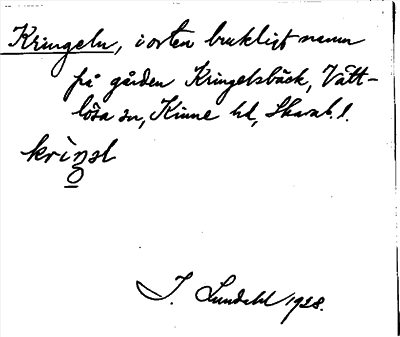 Kringeln, i orten brukligt namn
på gården Kringelsbäck, Vätt-
lösa sn, Kinne hd, Skarab. l.
krìŋəl
I. Lundahl 1928.